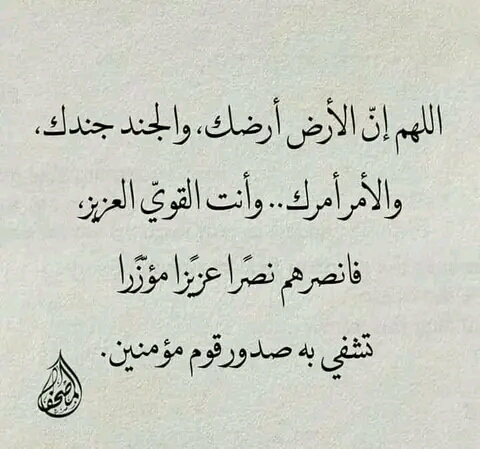 اللهم إنّ الأرض أرضك، والجند جندك،
والأمر أمرك.. وأنت القويّ العزيز،
فانصرهم نصرًا عزيزًا مؤزّرا
تشفي به صدور قوم مؤمنين.